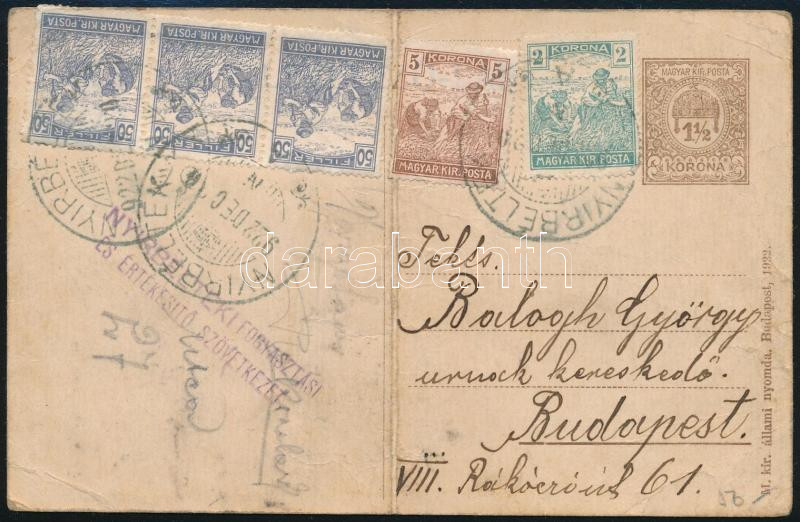 MAGYAR KIR. POSTA
50 FILLÉR 50
MAGYAR KIR. POSTA
50 FILLÉR 50
MAGYAR KIR. POSTA
50 FILLÉR 50
5 KORONA 5
MAGYAR KIR. POSTA
2 KORONA 2
MAGYAR KIR. POSTA
MAGYAR KIR. POSTA
1½
KORONA
NYIRBÉLTEK
922 DEC
NYIRBÉLTEK
922 DEC
NYIRBÉLTEK
FOGYASZTÁSI
ÉS ÉRTÉKESITŐ SZÖVETKEZET
utca
24
darabanth
Tekés.
Balogh György
urnak kereskedő.
Budapest.
VIII. Rákóczi út 61.
M. kir. állami nyomda, Budapest, 1922.
50